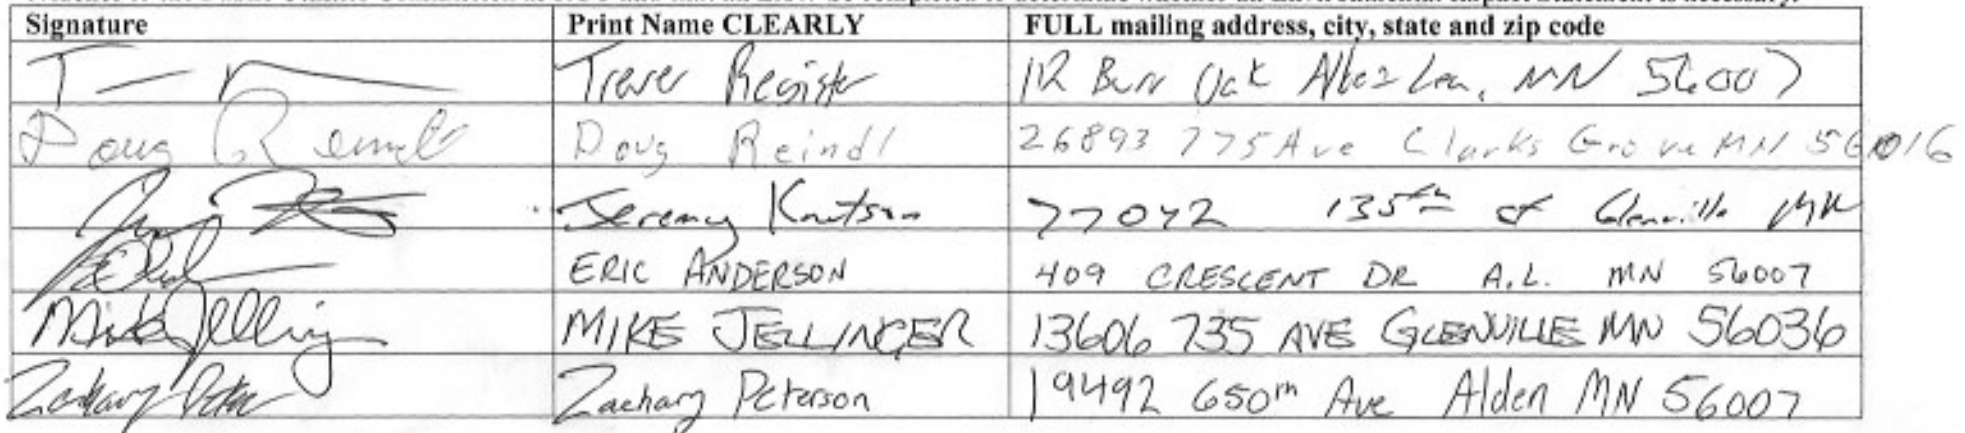 Signature Print Name CLEARLY FULL mailing address, city, state and zip code
Trever Register 112 Burr Oak Albert Lea, MN 56007
Doug Reindl Doug Reindl 26893 775 Ave Clarks Grove MN 56016
Jeremy Knutson 77042 135th st Glenville MN
ERIC ANDERSON 409 CRESCENT DR A.L. MN 56007
Mike Jelling MIKE JELLINGER 13606 735 AVE GLENVILLE MN 56036
Zachary Peter Zachary Peterson 19492 650th Ave Alden MN 56007